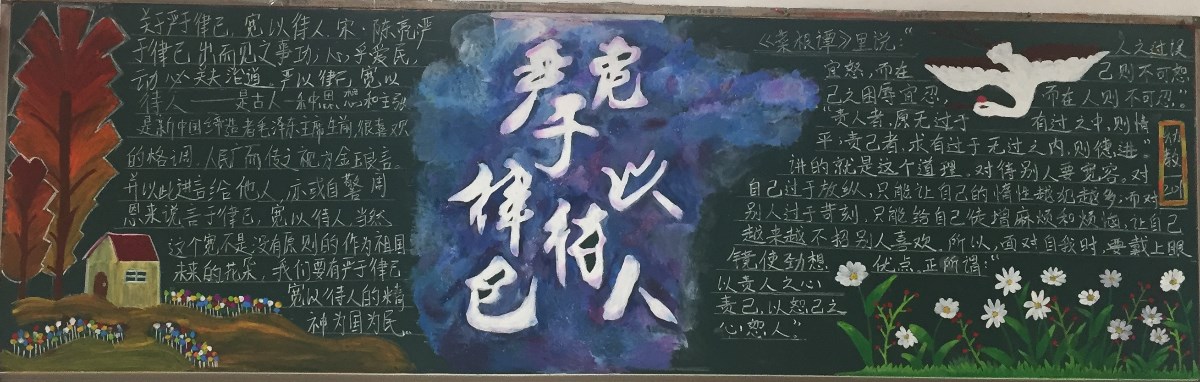 关于严于律己，宽以待人.宋·陈亮严
于律己，出而见之事功，心乎爱民，
动必关夫治道 严以律己，宽以
待人——是古人一条中思想和主动
是新中国缔造者毛泽东主席生前,很喜欢
的格调.人民了而传之视为金玉良言。
并以此进言给他人，亦或自警 周
恩来说言于律己，宽以待人.当然
这个宽不是没有原则的 作为祖国
未来的花朵，我们要有严于律己
宽以待人的精
神为国为民。
严于律己
宽以待人
《菜根谭》里说："人之过误
宜恕，而在己则不可恕
己之困辱宜忍，而在人则不可忍."
责人者，原无过于有过之中，则情
平，责己者，求有过于无过之内，则德进."
讲的就是这个道理.对待别人要宽容。对
自己过于放纵，只能让自己的惰性越犯越多，而对
别人过于苛刻，只能给自己徒增麻烦和烦恼，让自己
越来越不招别人喜欢.所以，面对自我时，要戴上眼
镜使劲想优点.正所谓："
以责人之心
责己，以恕己之
心恕人"